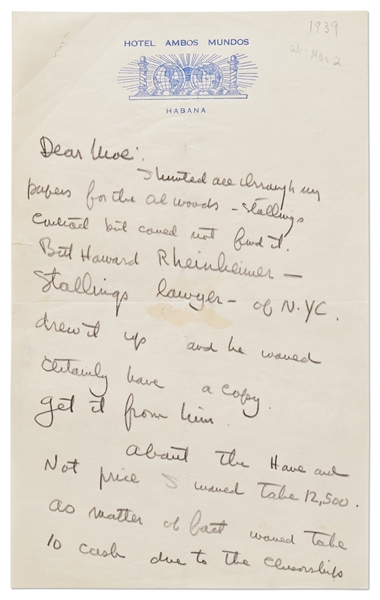 1939
HOTEL AMBOS MUNDOS
HABANA
Dear Moe:
I hunted all through my
papers for the Al Woods – Stallings
contract but could not find it.
But Howard Rheinheimer –
Stallings lawyer – of N.Y.C.
drew it up and he would
certainly have a copy.
get it from him.
About the Have and
Not price I would take 12,500.
as matter of fact would take
10 cash due to the censorships